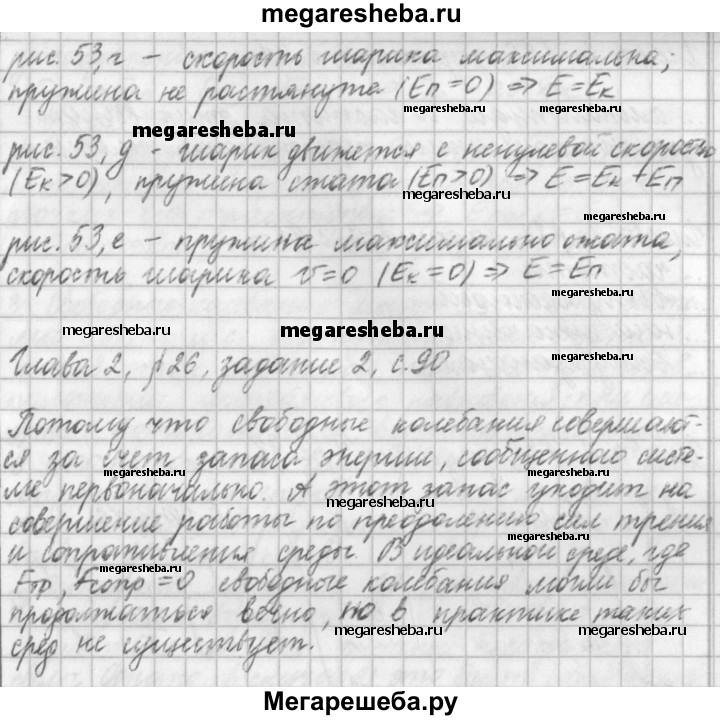 megaresheba.ru
рис. 53, г – скорость шарика максимальна;
пружина не растянута (Eп = 0) => E = Eк
megaresheba.ru
megaresheba.ru
megaresheba.ru
рис. 53, д - шарик движется с ненулевой скоростью
(Eк > 0), пружина сжата (Eп > 0) => E = Eк + Eп
megaresheba.ru
megaresheba.ru
рис. 53, е – пружина максимально сжата,
скорость шарика v = 0 (Eк = 0) => E = Eп
megaresheba.ru
megaresheba.ru
megaresheba.ru
megaresheba.ru
Глава 2, §26, задание 2, с. 90
Потому что свободные колебания совершают-
ся за счет запаса энергии, сообщенного систе-
megaresheba.ru
megaresheba.ru
ме первоначально. А этот запас уходит на
megaresheba.ru
совершение работы по преодолению сил трения
megaresheba.ru
и сопротивления среды. В идеальной среде, где
Fтр, Fсопр = 0 свободные колебания могли бы
megaresheba.ru
megaresheba.ru
продолжаться вечно, но в практике таких
megaresheba.ru
megaresheba.ru
сред не существует.
Мегарешеба.ру